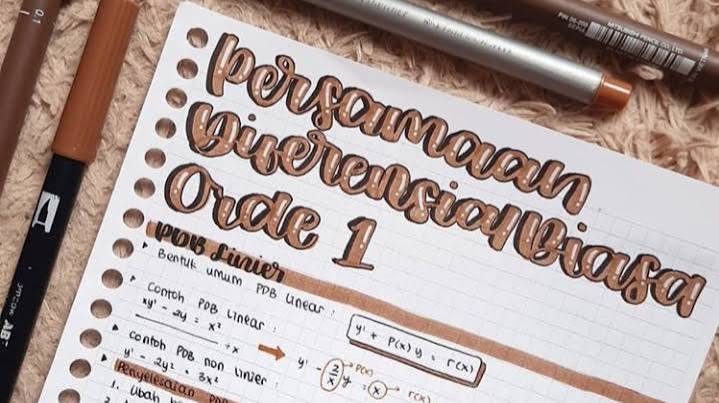 0.1
MITSUBISHI PENCIL CO., LTD.
Persamaan
Diferensial Biasa
Orde 1
PDB Linier
Bentuk umum PDB Linear :
y' + P(x) y = r(x)
Contoh PDB Linear :
xy' - 2y = x²
÷x
y' - 2/x y = x
P(x)
r(x)
Contoh PDB non Linier :
y' - 2y² = 3x²
Penyelesaian PDB
1. Ubah
AB